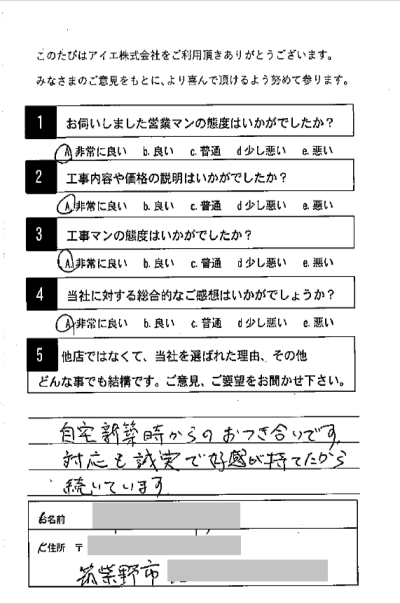 このたびはアイエ株式会社をご利用頂きありがとうございます。
みなさまのご意見をもとに、より喜んで頂けるよう努めて参ります。
1 お伺いしました営業マンの態度はいかがでしたか?
A 非常に良い b. 良い c. 普通 d 少し悪い e. 悪い
2 工事内容や価格の説明はいかがでしたか?
A. 非常に良い b. 良い c. 普通 d 少し悪い e. 悪い
3 工事マンの態度はいかがでしたか?
A. 非常に良い b. 良い c. 普通 d 少し悪い e. 悪い
4 当社に対する総合的なご感想はいかがでしょうか?
A 非常に良い b. 良い c. 普通 d 少し悪い e. 悪い
5 他店ではなくて、当社を選ばれた理由、その他
どんな事でも結構です。ご意見、ご要望をお聞かせ下さい。
自宅新築時からのおつき合いです。
対応も誠実で好感が持てたから
続いています
お名前
ご住所 〒
筑紫野市